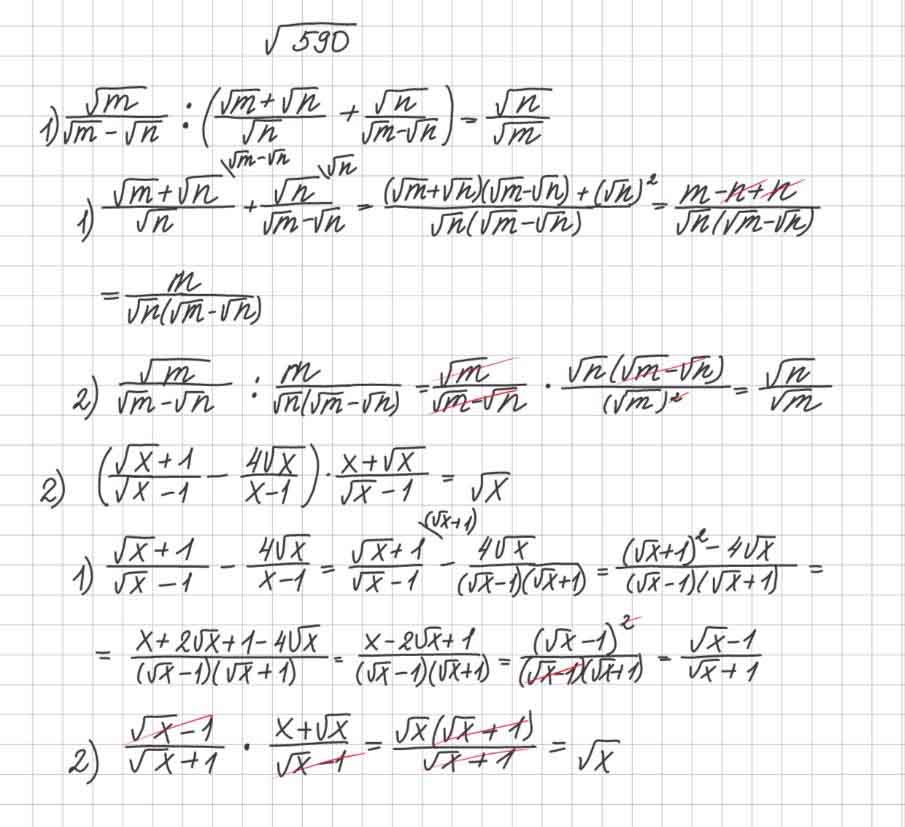 √590
1) √m/(√m-√n) : ((√m+√n)/√n + √n/(√m-√n)) = √n/√m
1) (√m+√n)/√n \√m-√n + √n/(√m-√n) \√n = ((√m+√n)(√m-√n)+(√n)²)/(√n(√m-√n)) = (m-n+n)/(√n(√m-√n))
= m/(√n(√m-√n))
2) √m/(√m-√n) : m/(√n(√m-√n)) = √m/(√m-√n) · √n(√m-√n)/(√m)² = √n/√m
2) ((√x+1)/(√x-1) - 4√x/(x-1)) · (x+√x)/(√x-1) = √x
1) (√x+1)/(√x-1) - 4√x/(x-1) = (√x+1)/(√x-1) \(√x+1) - 4√x/((√x-1)(√x+1)) = ((√x+1)²-4√x)/((√x-1)(√x+1)) =
= (x+2√x+1-4√x)/((√x-1)(√x+1)) = (x-2√x+1)/((√x-1)(√x+1)) = (√x-1)²/((√x-1)(√x+1)) = (√x-1)/(√x+1)
2) (√x-1)/(√x+1) · (x+√x)/(√x-1) = √x(√x+1)/(√x+1) = √x